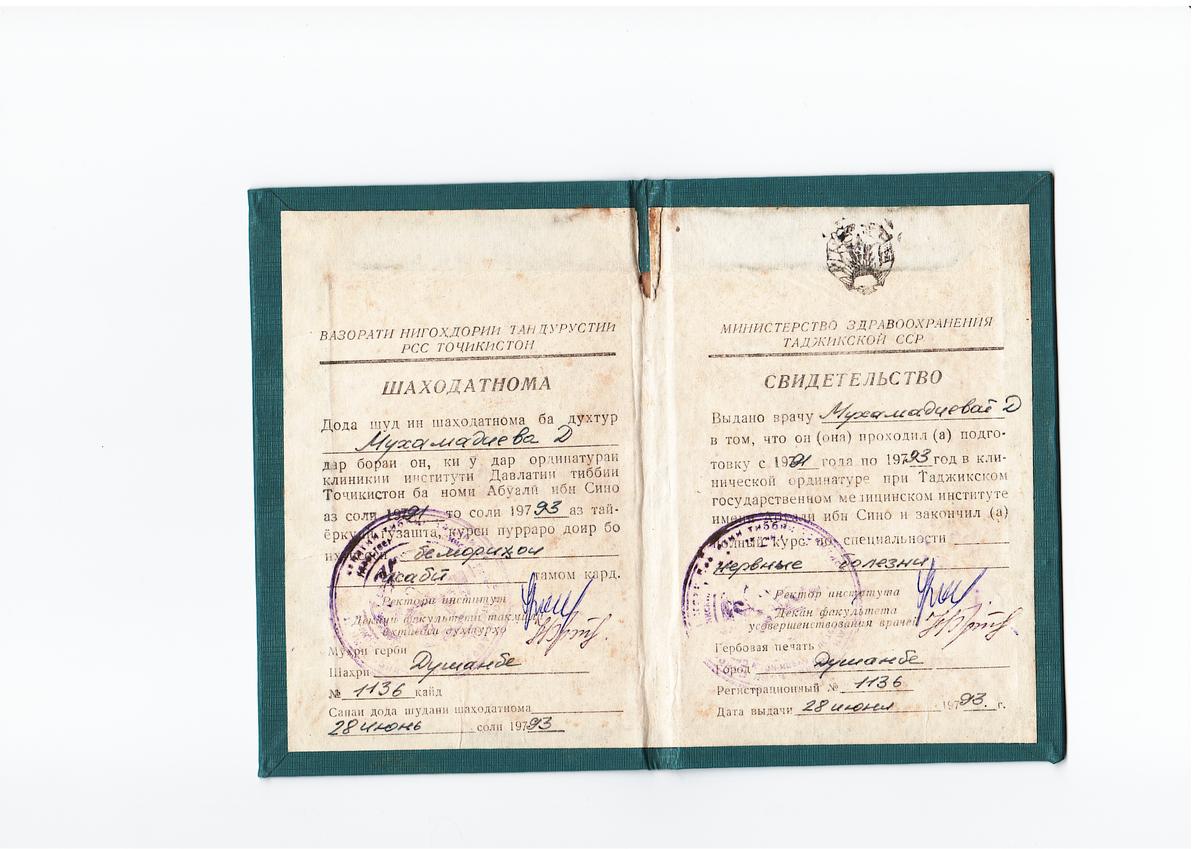 ВАЗОРАТИ НИГОХДОРИИ ТАНДУРУСТИИ
РСС ТОҶИКИСТОН
ШАХОДАТНОМА
Дода шуд ин шаходатнома ба духтур
Мухамадиева Д
дар бораи он, ки ӯ дар ординатураи
клиникии институти Давлатии тиббии
Тоҷикистон ба номи Абуалӣ ибн Сино
аз соли 1991 то соли 19793 аз тай-
гузашта, курси пурраро доир бо
бемориҳои
асабӣ тамом кард.
Ректори институт
Декани факультети
духтурҳо
Мухри герби
Шахри Душанбе
№ 1136 кайд
Санаи дода шудани шаходатнома
28 июнь соли 19793
МИНИСТЕРСТВО ЗДРАВООХРАНЕНИЯ
ТАДЖИКСКОЙ ССР
СВИДЕТЕЛЬСТВО
Выдано врачу Мухамадиевой Д
в том, что он (она) проходил (а) подго-
товку с 1991 года по 19793 год в кли-
нической ординатуре при Таджикском
государственном медицинском институте
имени Абуали ибн Сино и закончил (а)
полный курс по специальности
нервные болезни
Ректор института
Декан факультета
усовершенствования врачей
Гербовая печать
Город Душанбе
Регистрационный № 1136
Дата выдачи 28 июня 19793. г.